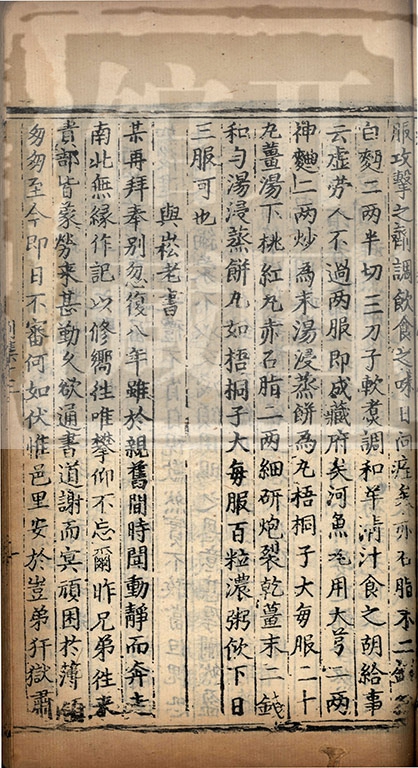 服攻擊之劑調飲食之味日向痊矣赤石脂不二
白麪二兩半切三刀子軟煑調和羊清汁食之胡給事
云虛勞人不過兩服即成臓府矣河魚丸用大芎一兩
神麯二兩炒為末湯浸蒸餅為丸梧桐子大每服二十
丸薑湯下桃紅丸赤石脂一兩細研炮裂乾薑末二錢
和勻湯浸蒸餅丸如梧桐子大每服百粒濃粥飲下日
三服可也
與崧老書
某再拜奉別忽復八年雖於親舊間時聞動靜而奔走
南北無緣作記以修嚮徃唯攀仰不忘爾昨兄弟徃來
貴部皆蒙勞來甚勤久欲通書道謝而冥頑困於薄領
匆匆至今即日不審何如伏惟邑里安於豈弟犴獄肅